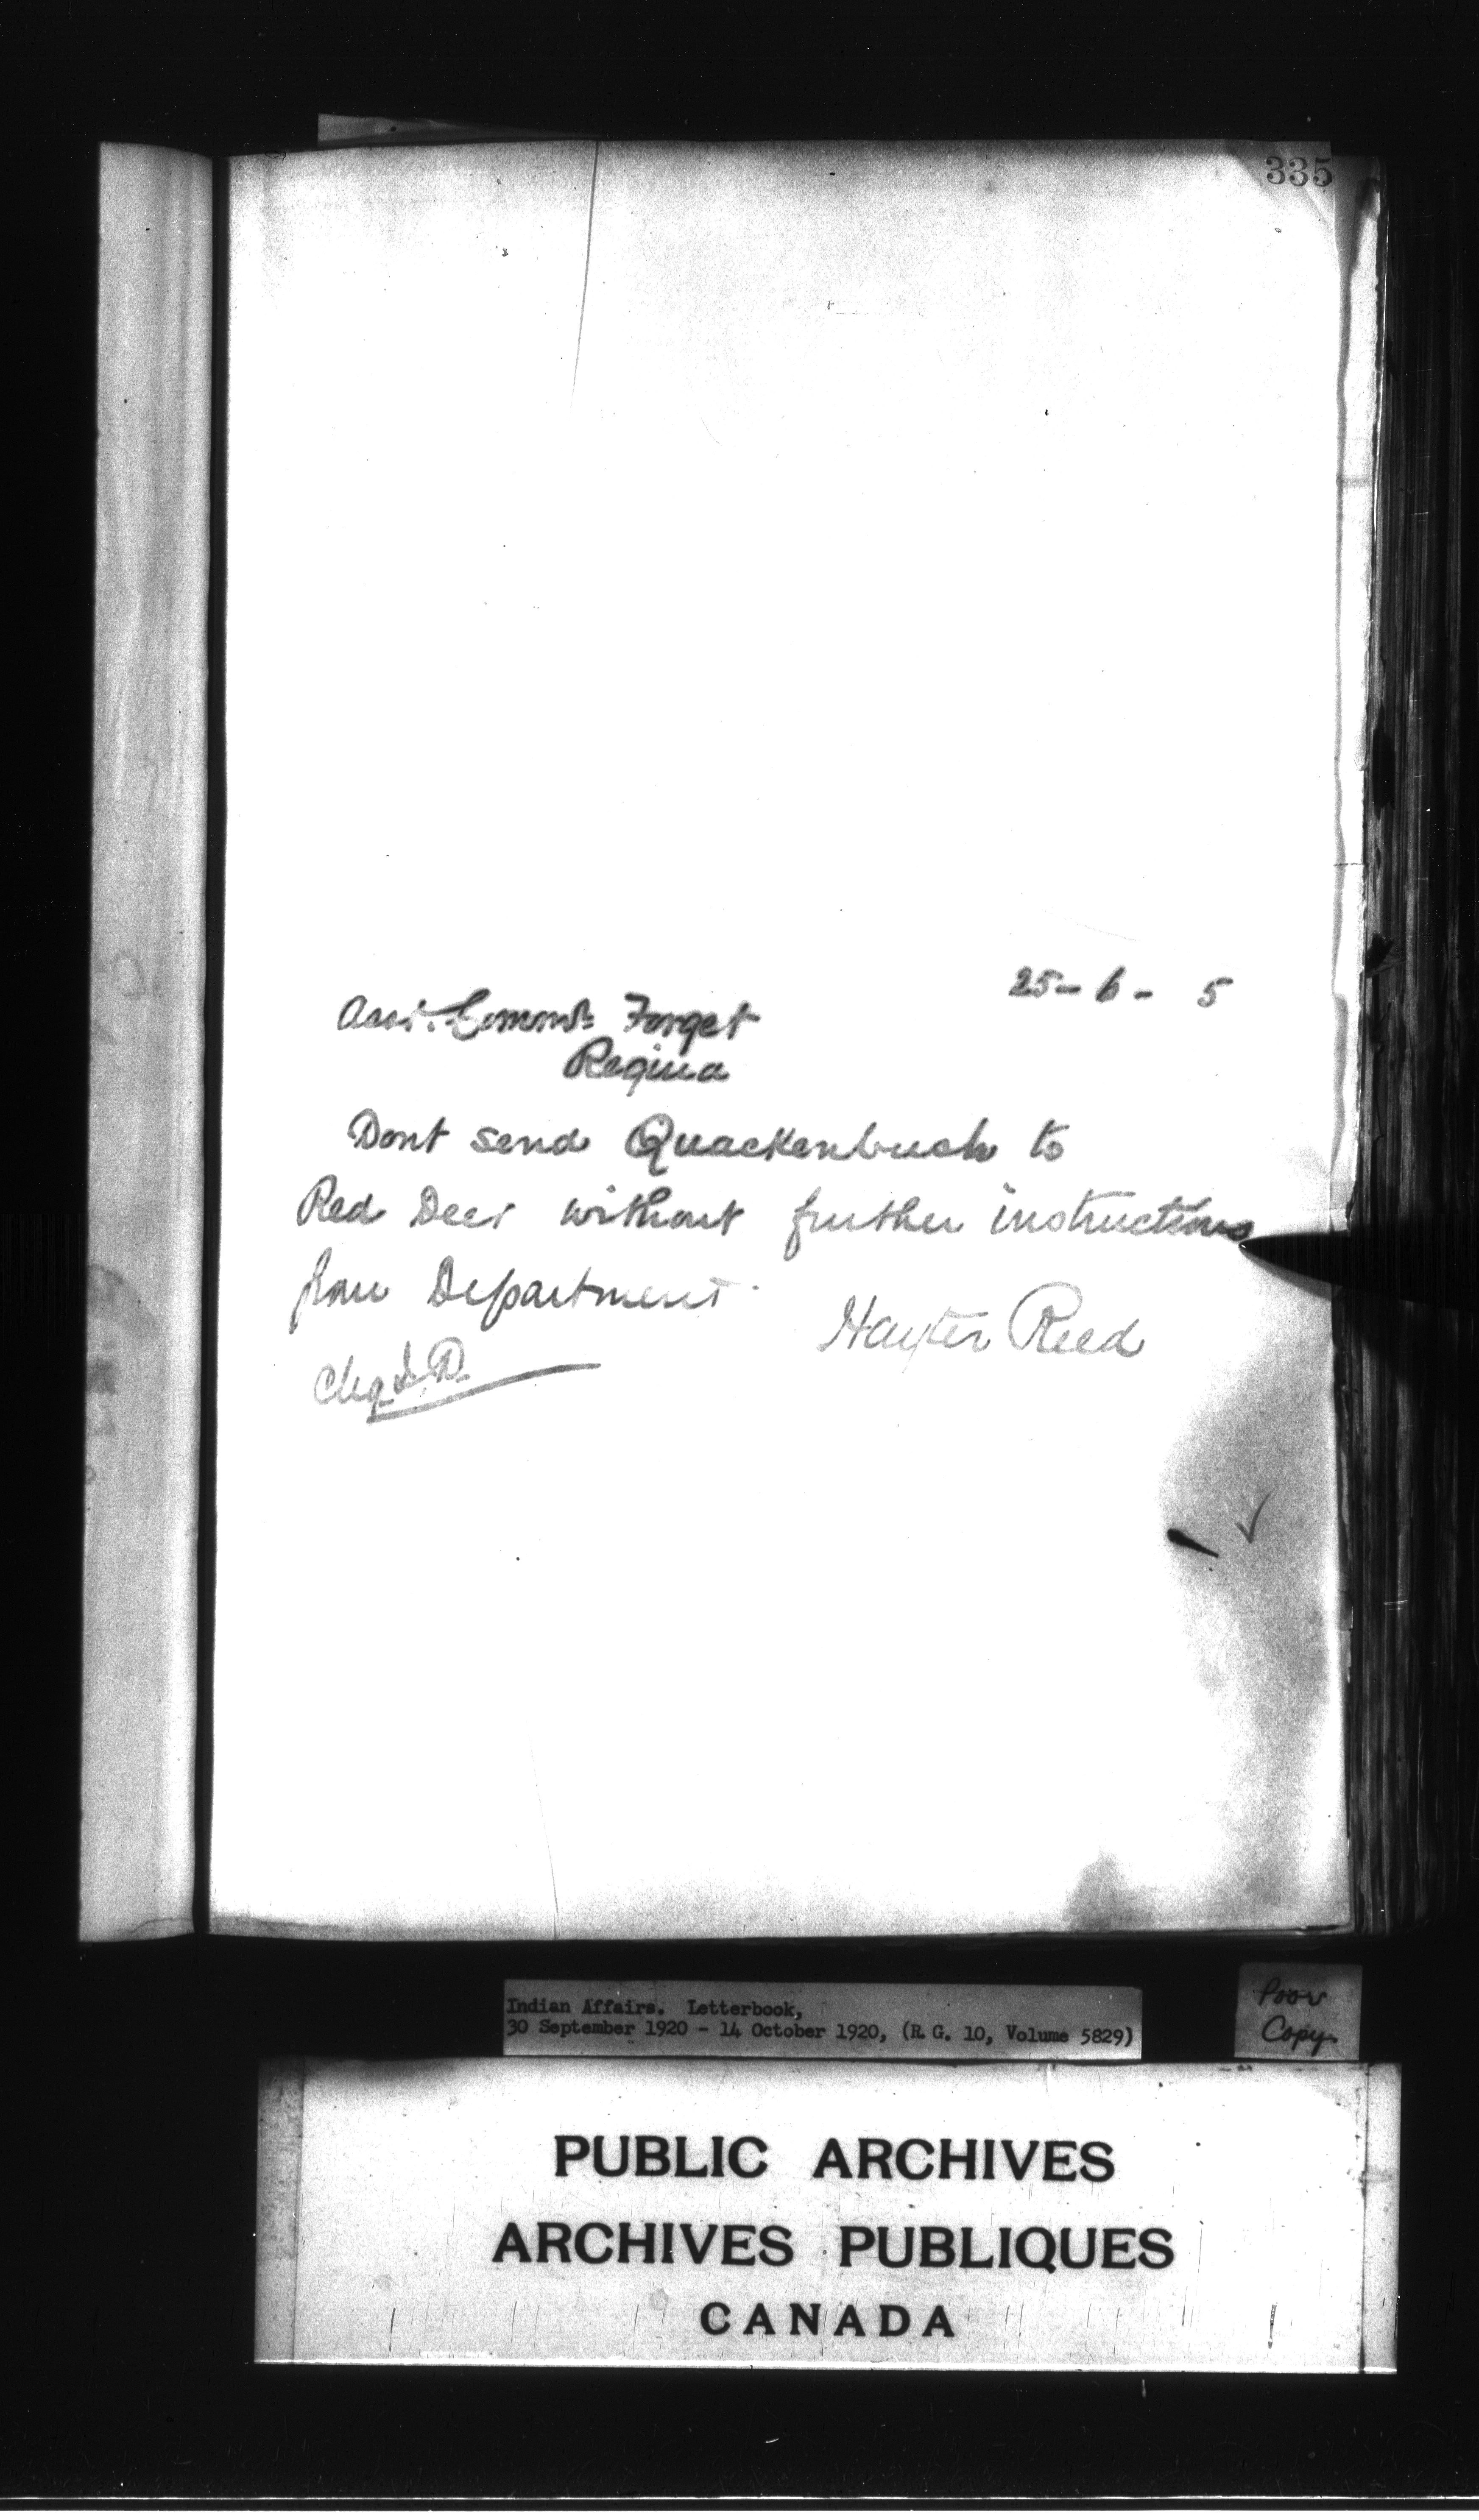 335
25 - 6 - 5
Assi. Commr. Forget
Regina
Dont send Quackenbush to
Red Deer without further instructions
from Department.
Hayter Reed
Chg I.D.
Indian Affairs. Letterbook,
30 September 1920 - 14 October 1920, (R.G. 10, Volume 5829)
Poor
Copy
PUBLIC ARCHIVES
ARCHIVES PUBLIQUES
CANADA